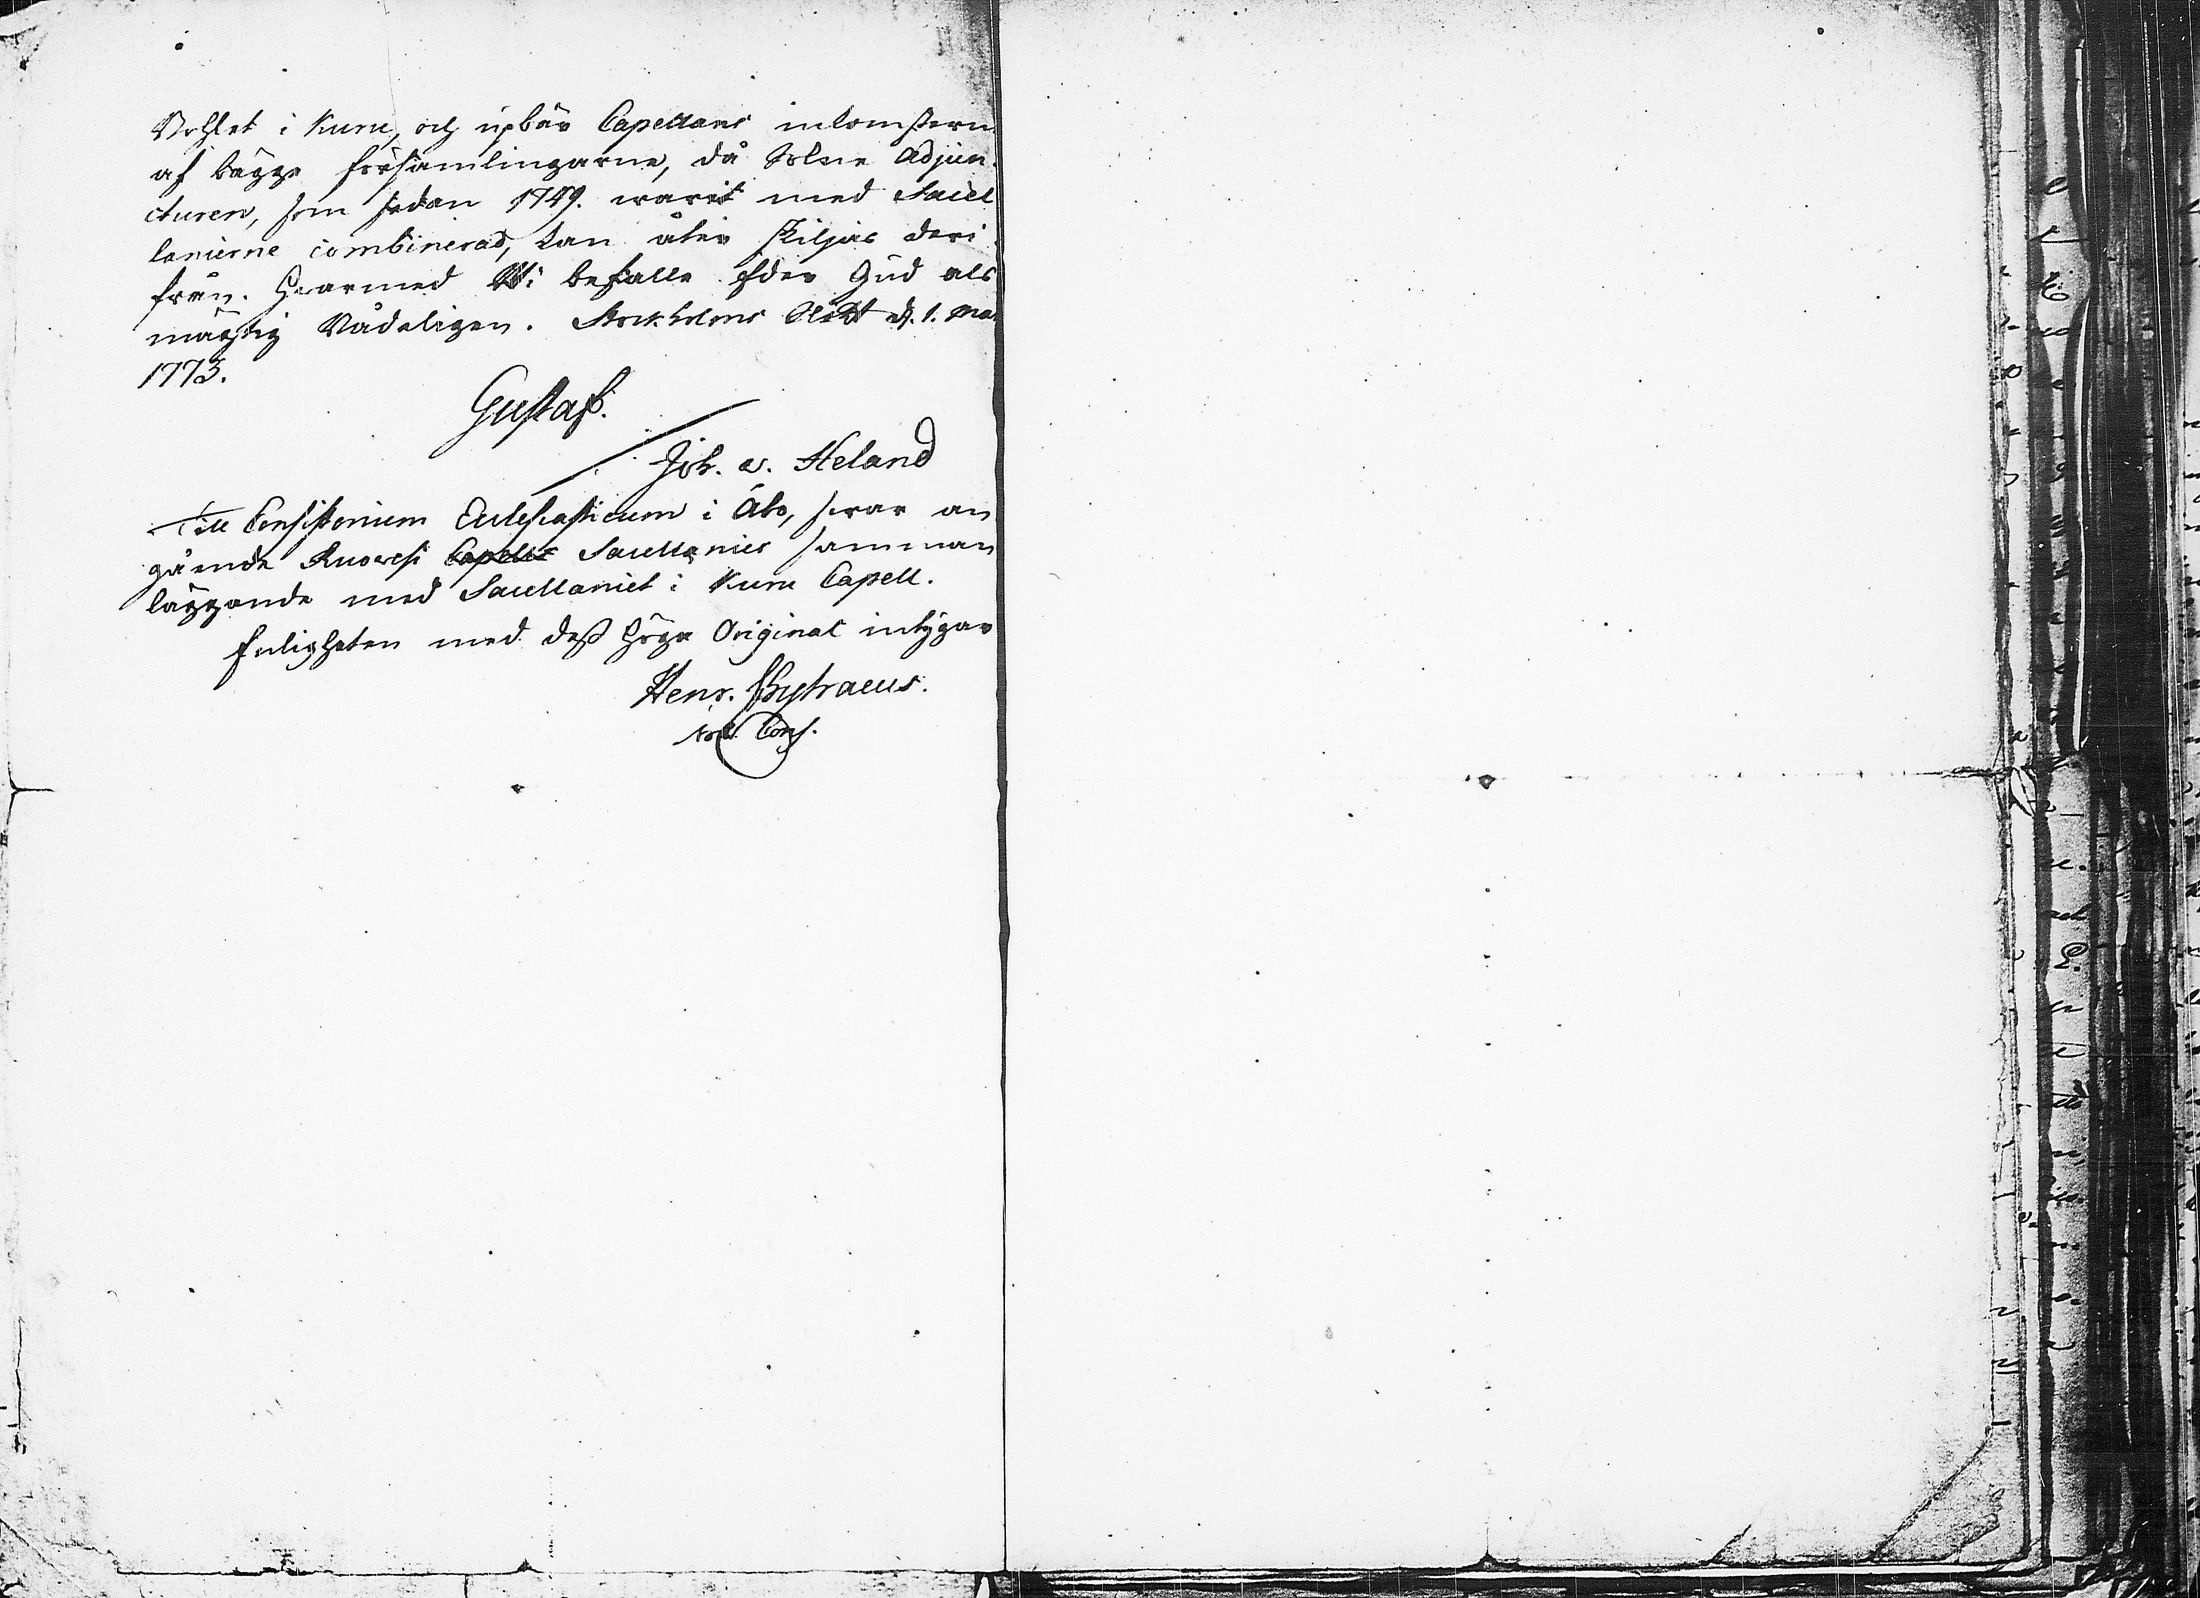 Bohlet i Kuru, och upbär Capellans inkomstern
af bägge församlingarne, då Adjun-
cturen, som sedan 1749. warit med Sacel
lanierne combinerad, kan åter skiljas deri-
från. Hwarmed Wi befalle Eder Gud als
mächtig Nådeligen. Stockholms Slott d. 1. Mar
1773.
Gustaf.
Joh. v. Heland
Till Consistorium Ecclesiasticum i Åbo, swar an
gående Ruowesi Capells Sacellanies samman
läggande med Sacellaniet i Kuru Capell.
Enligheten med dess Höga Original intygar
Henr. Chytraeus.
Not. Cons.